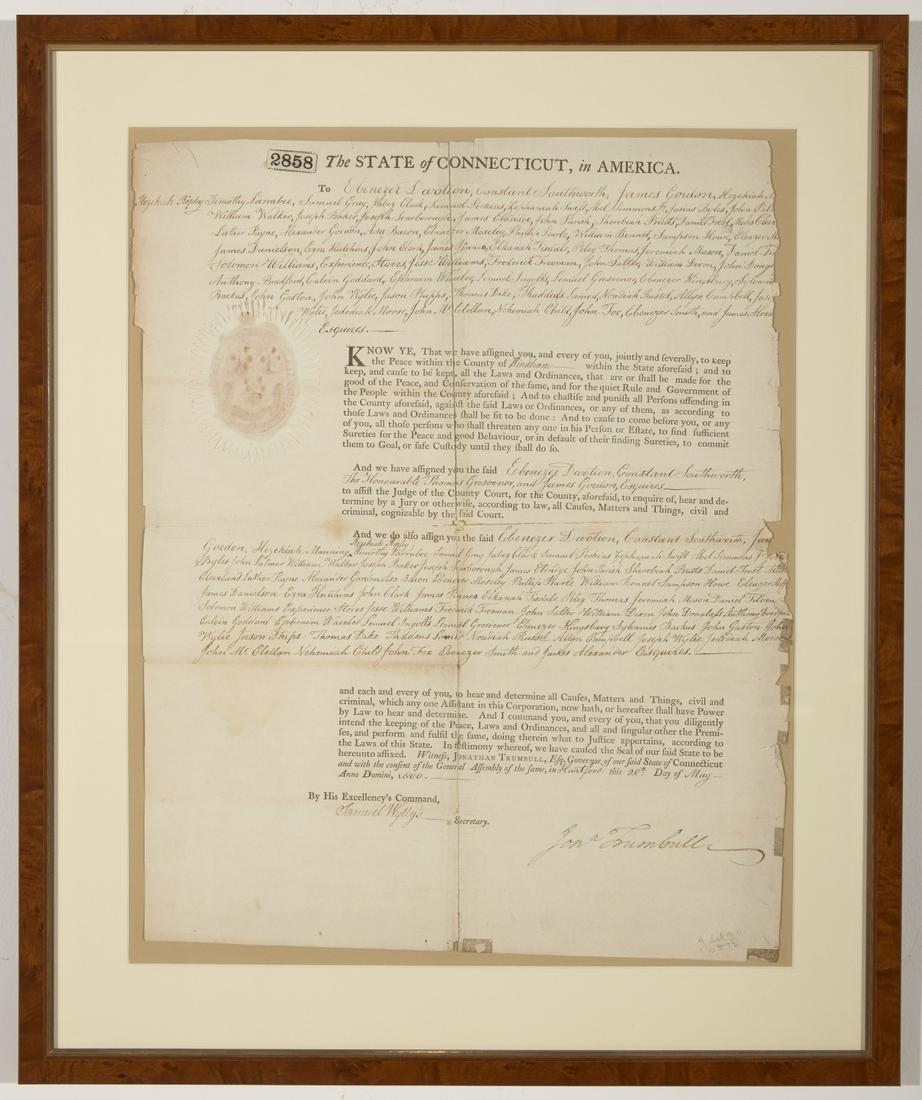 2858 The STATE of CONNECTICUT, in AMERICA.
To Ebenezer Devotion, Constant Southworth, James Gordon, Hezekiah M
Hezekiah Ripley Timothy Larrabee, Samuel Gray, Jabez Clark, Samuel Perkins, Zephaniah Swift, Abel Simmons Jr, Josias Byles, John Pal
William Walker, Joseph Baker, Joseph Scarborough, James Eldridge, John Parish, Sherebiah Butts, Daniel Frost, Moses Cleav
Luther Payne, Alexander Gordon, Asa Bacon, Ebenezer Moseley, Philip Pearle, William Bennet, Sampson Howe, Eleazer M
James Danielson, Ezra Hutchins, John Clark, James Pinneo, Elkanah Tisdale, Peley Thomas, Jeremiah Mason, Daniel
Solomon Williams, Experience Storrs, Jesse Williams, Frederick Freeman, John Salter, William Dixon, John Dougl
Anthony Bradford, Calvin Goddard, Ephraim Wheeler, Lemuel Ingolls, Lemuel Grosvenor, Ebenezer Kingsbury, Sylvanus
Backus, John Gaston, John Wylie, Jason Phipps, Thomas Dike, Thaddeus Larned, Noadiah Russel, Allen Campbell, Jos
Wylie, Jedediah Morse, John Mc Clellan, Nehemiah Child, John Fox, Ebenezer Smith, and James Alexa
Esquires.
KNOW YE, That we have assigned you, and every of you, jointly and severally, to keep
the Peace within the County of Windham within the State aforesaid ; and to
keep, and cause to be kept, all the Laws and Ordinances, that are or shall be made for the
good of the Peace, and Conservation of the same, and for the quiet Rule and Government of
the People within the County aforesaid ; And to chastise and punish all Persons offending in
the County aforesaid, against the said Laws or Ordinances, or any of them, as according to
those Laws and Ordinances shall be fit to be done : And to cause to come before you, or any
of you, all those persons who shall threaten any one in his Person or Estate, to find sufficient
Sureties for the Peace and good Behaviour, or in default of their finding Sureties, to commit
them to Goal, or safe Custody until they shall do so.
And we have assigned you the said Ebenezer Devotion, Constant Southworth,
The Honourable Thomas Grosvenor, and James Gordon, Esquires
to assist the Judge of the County Court, for the County, aforesaid, to enquire of, hear and de-
termine by a Jury or otherwise, according to law, all Causes, Matters and Things, civil and
criminal, cognizable by the said Court.
And we do also assign you the said Ebenezer Devotion, Constant Southworth, Jam
Hezekiah Ripley
Gordon, Hezekiah Manning, Timothy Larrabee Samuel Gray Jabez Clark Samuel Perkins Zephaniah Swift Abel Simmons Jr
Byles John Palmer William Walker Joseph Baker Joseph Scarborough James Eldridge John Parish Sherebiah Butts Daniel Frost
Cleveland Luther Payne Alexander Gordon Asa Bacon Ebenezer Moseley Philip Pearle William Bennet Sampson Howe Eleazer
James Danielson Ezra Hutchins John Clark James Pinneo Elkanah Tisdale Peley Thomas Jeremiah Mason Daniel
Solomon Williams Experience Storrs Jesse Williams Frederick Freeman John Salter William Dixon John Douglass Anthony Bradford
Calvin Goddard Ephraim Wheeler Lemuel Ingolls Lemuel Grosvenor Ebenezer Kingsbury Sylvanus Backus John Gaston John
Wylie Jason Phips Thomas Dike Thaddeus Larned Noadiah Russel Allen Campbell Joseph Wylie Jedediah Morse
John Mc Clellan Nehemiah Child John Fox Ebenezer Smith and James Alexander Esquires.
and each and every of you, to hear and determine all Causes, Matters and Things, civil and
criminal, which any one Assistant in this Corporation, now hath, or hereafter shall have Power
by Law to hear and determine. And I command you, and every of you, that you diligently
intend the keeping of the Peace, Laws and Ordinances, and all and singular other the Premi-
ses, and perform and fulfil the same, doing therein what to Justice appertains, according to
the Laws of this State. In testimony whereof, we have caused the Seal of our said State to be
hereunto affixed. Witness, JONATHAN TRUMBULL, Esq. Governor, of our said State of Connecticut
and with the consent of the General Assembly of the same, in Hartford this 26th Day of May
Anno Domini, 1800.
By His Excellency's Command,
Samuel Wyllys Secretary.
Jona Trumbull